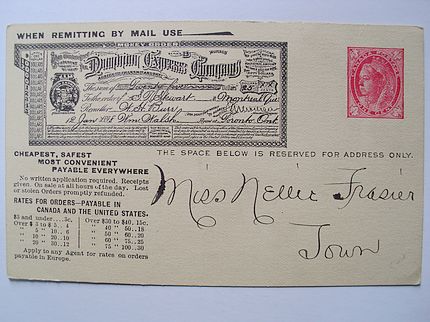 WHEN REMITTING BY MAIL USE
MONEY ORDER
Dominion Express Company
The sum of Twenty five
To the order of S. W. Stewart at Montreal Que
Remitter W. S. Burr
12 Jan 1898 Wm Walsh Toronto Ont
CHEAPEST, SAFEST
MOST CONVENIENT
PAYABLE EVERYWHERE
No written application required. Receipts
given. On sale at all hours of the day. Lost
or stolen Orders promptly refunded.
RATES FOR ORDERS—PAYABLE IN
CANADA AND THE UNITED STATES.
$5 and under....3c. Over $30 to $40..15c.
Over $ 5 to $ 5.. 4 " 40 " 50..18
" 5 " 10.. 6 " 50 " 60..20
" 10 " 20..10 " 60 " 75..25
" 20 " 30..12 " 75 " 100..30
Apply to any Agent for rates on orders
payable in Europe.
THE SPACE BELOW IS RESERVED FOR ADDRESS ONLY.
Miss Nellie Frasier
Town